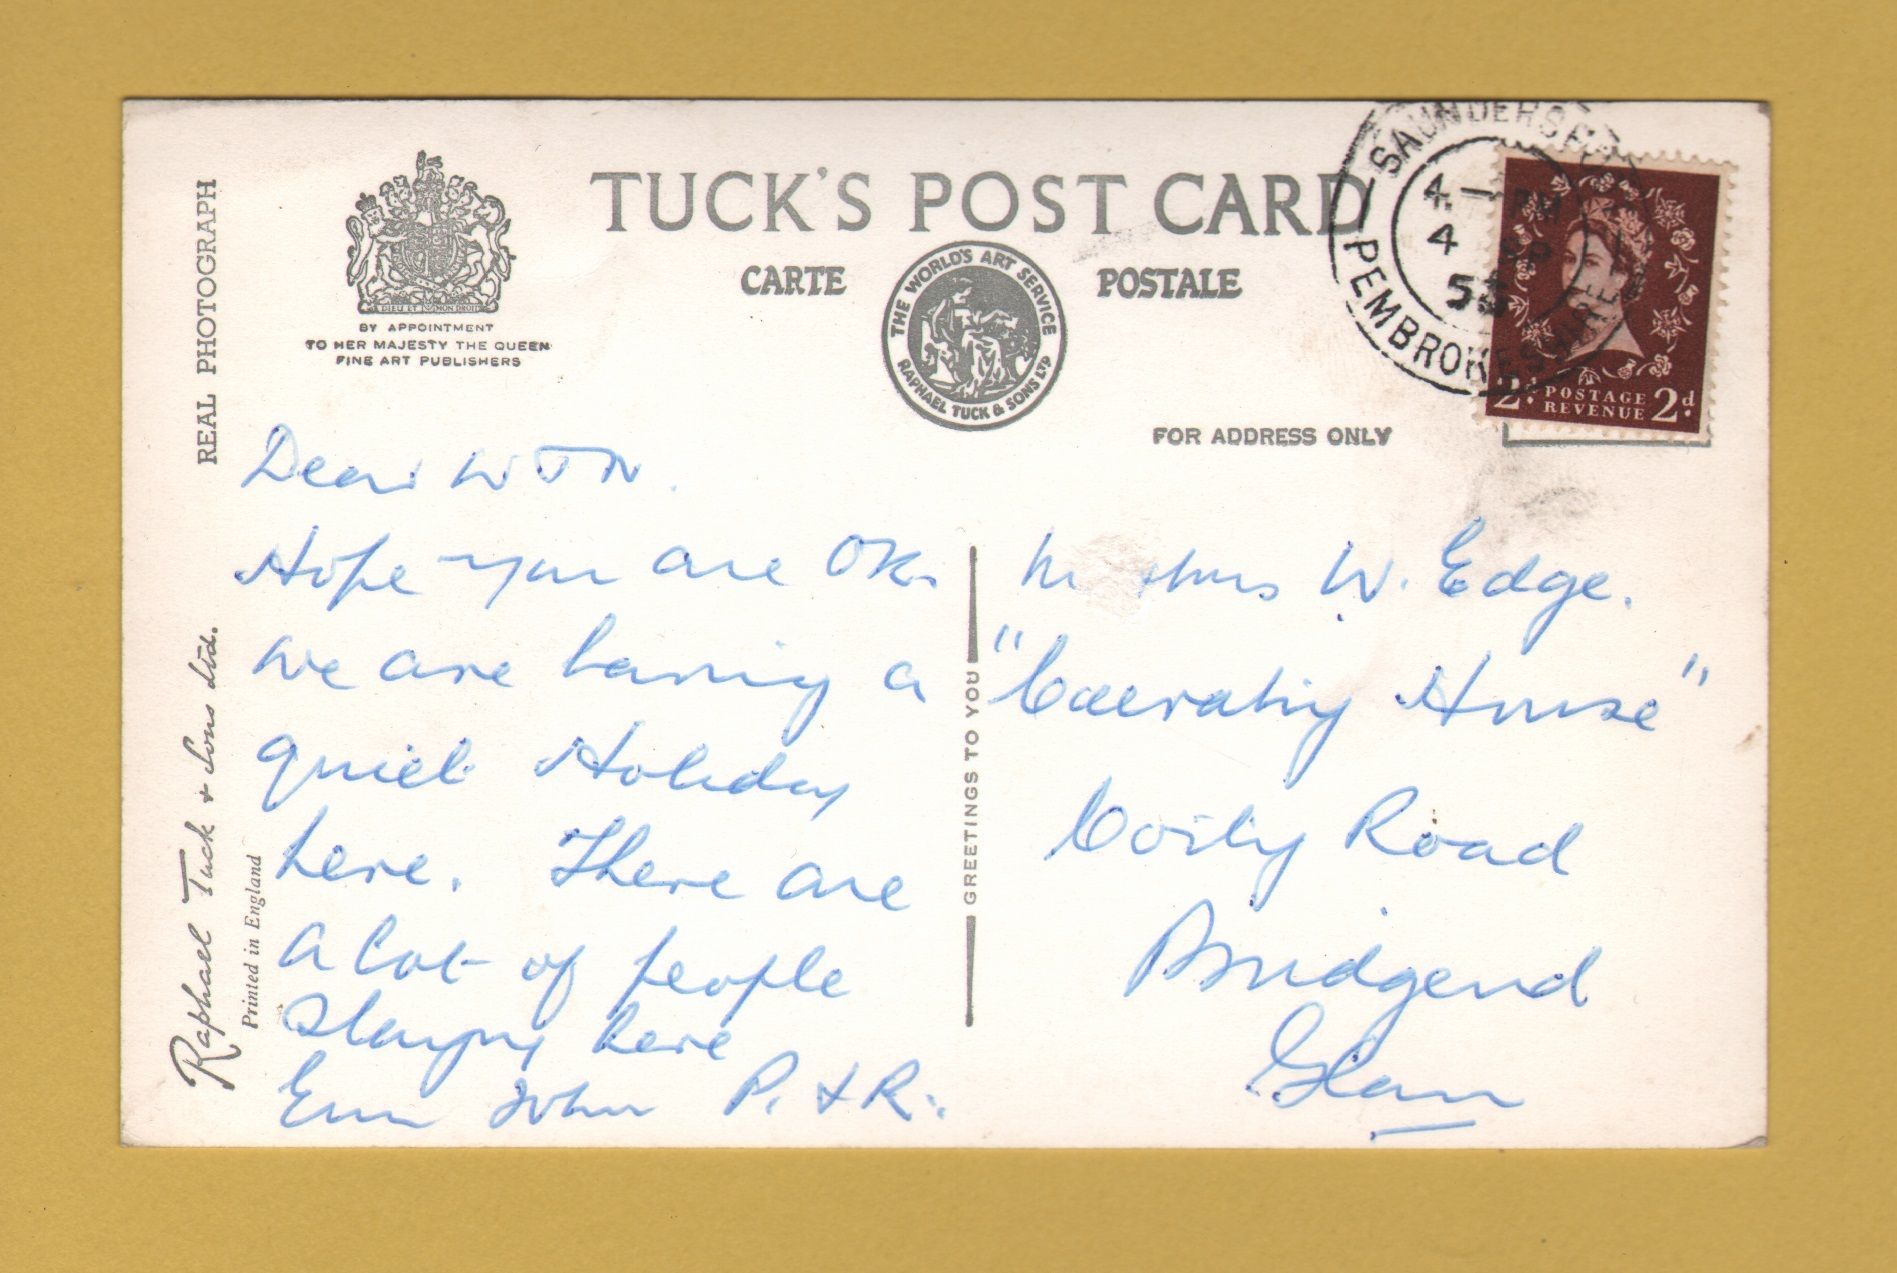 REAL PHOTOGRAPH
Raphael Tuck & Sons Ltd.
Printed in England
DIEU ET MON DROIT
BY APPOINTMENT
TO HER MAJESTY THE QUEEN
FINE ART PUBLISHERS
TUCK'S POST CARD
CARTE POSTALE
THE WORLD'S ART SERVICE
RAPHAEL TUCK & SONS LTD
FOR ADDRESS ONLY
SAUNDERSF
4 — PM
4 SP
PEMBROKESHIRE
2d POSTAGE 2d
REVENUE
GREETINGS TO YOU
Dear W J N.
Hope you are OK.
we are having a
quiet Holiday
here. There are
a lot of people
staying here
John P. & R.
W. Edge.
House"
Coity Road
Bridgend
Glam